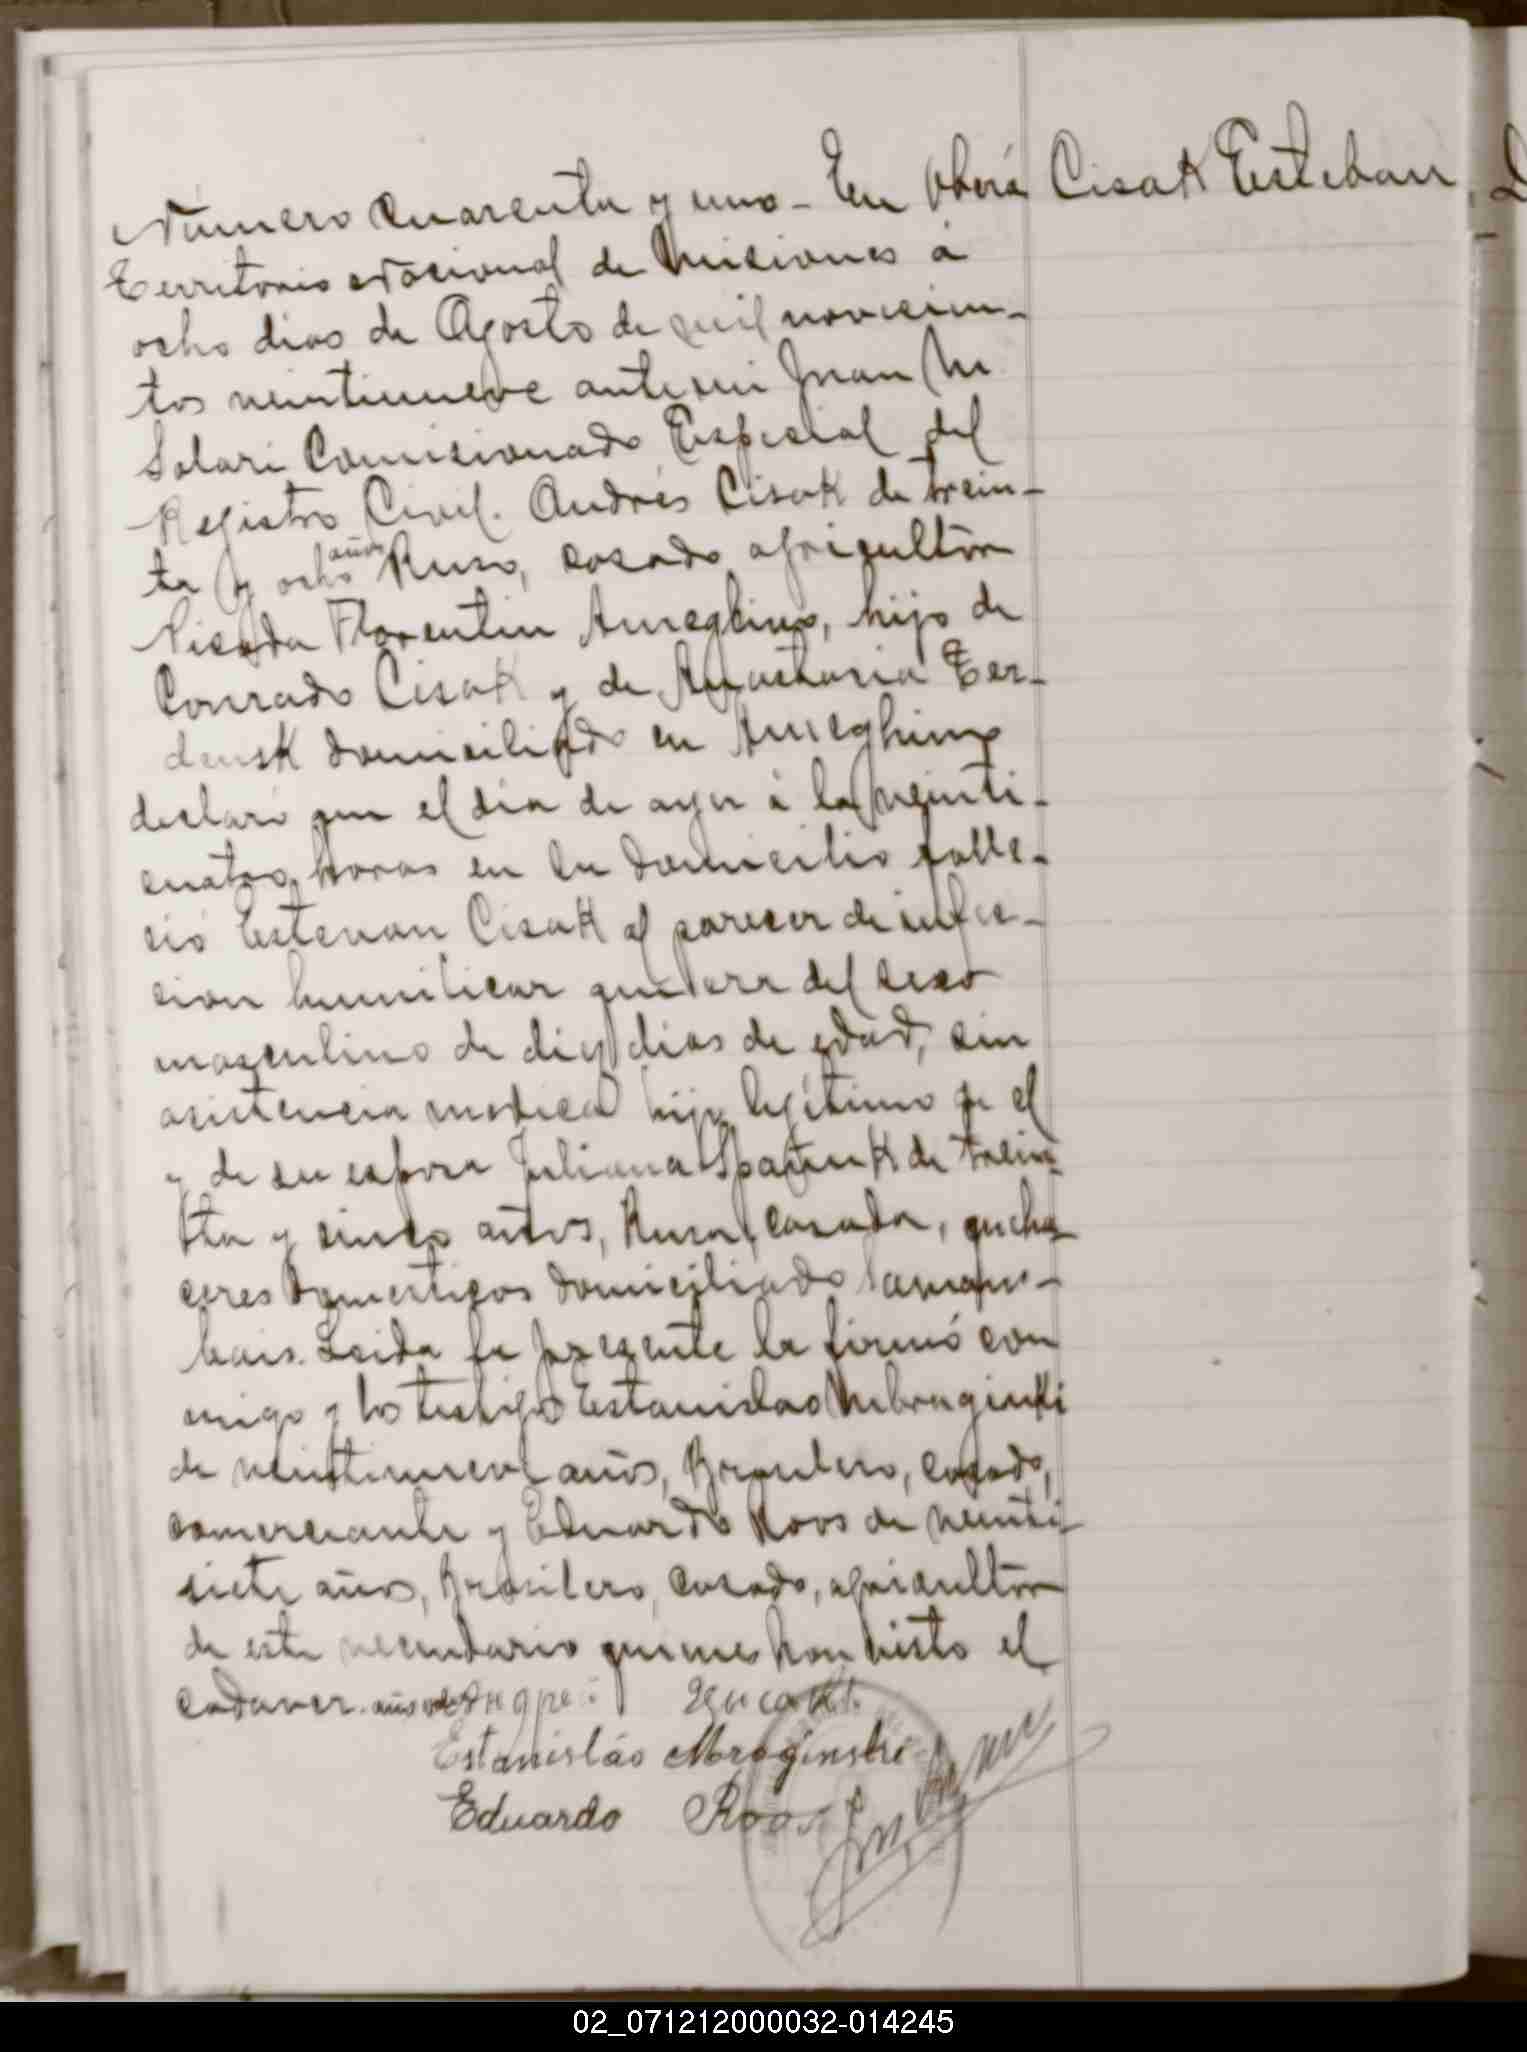 Número cuarenta y uno - En Oberá
Cisak Esteban,
Territorio Nacional de Misiones á
ocho dias de Agosto de mil novecien-
tos veintinueve ante mi Juan M
Solari Comisionado Especial del
Registro Civil. Andrés Cisak de trein-
años
ta y ocho Ruso, casado agricultor
Picada Florentin Ameghino, hijo de
Conrado Cisak y de Anastasia Ter-
densk domiciliado en Ameghino
declaró que el día de ayer á la veinti-
cuatro horas en su domicilio falle-
ció Estevan Cisak al parecer de infec-
cion humilicar que era del sexo
masculino de diez dias de edad, sin
asistencia medica hijo legítimo de el
y de su esposa Juliana de trein-
ta y cinco años, Rusa, casada, queha-
ceres domesticos domiciliado
Leida la presente la firmó con
migo y los testigos Estanislao
de veintinueve años, Brasilero, casado,
comerciante y Eduardo Roos de veinti-
siete años, Brasilero, casado, agricultor
de este vecindario quienes han visto el
cadaver. años
Estanisláo
Eduardo Roos
02_071212000032-014245